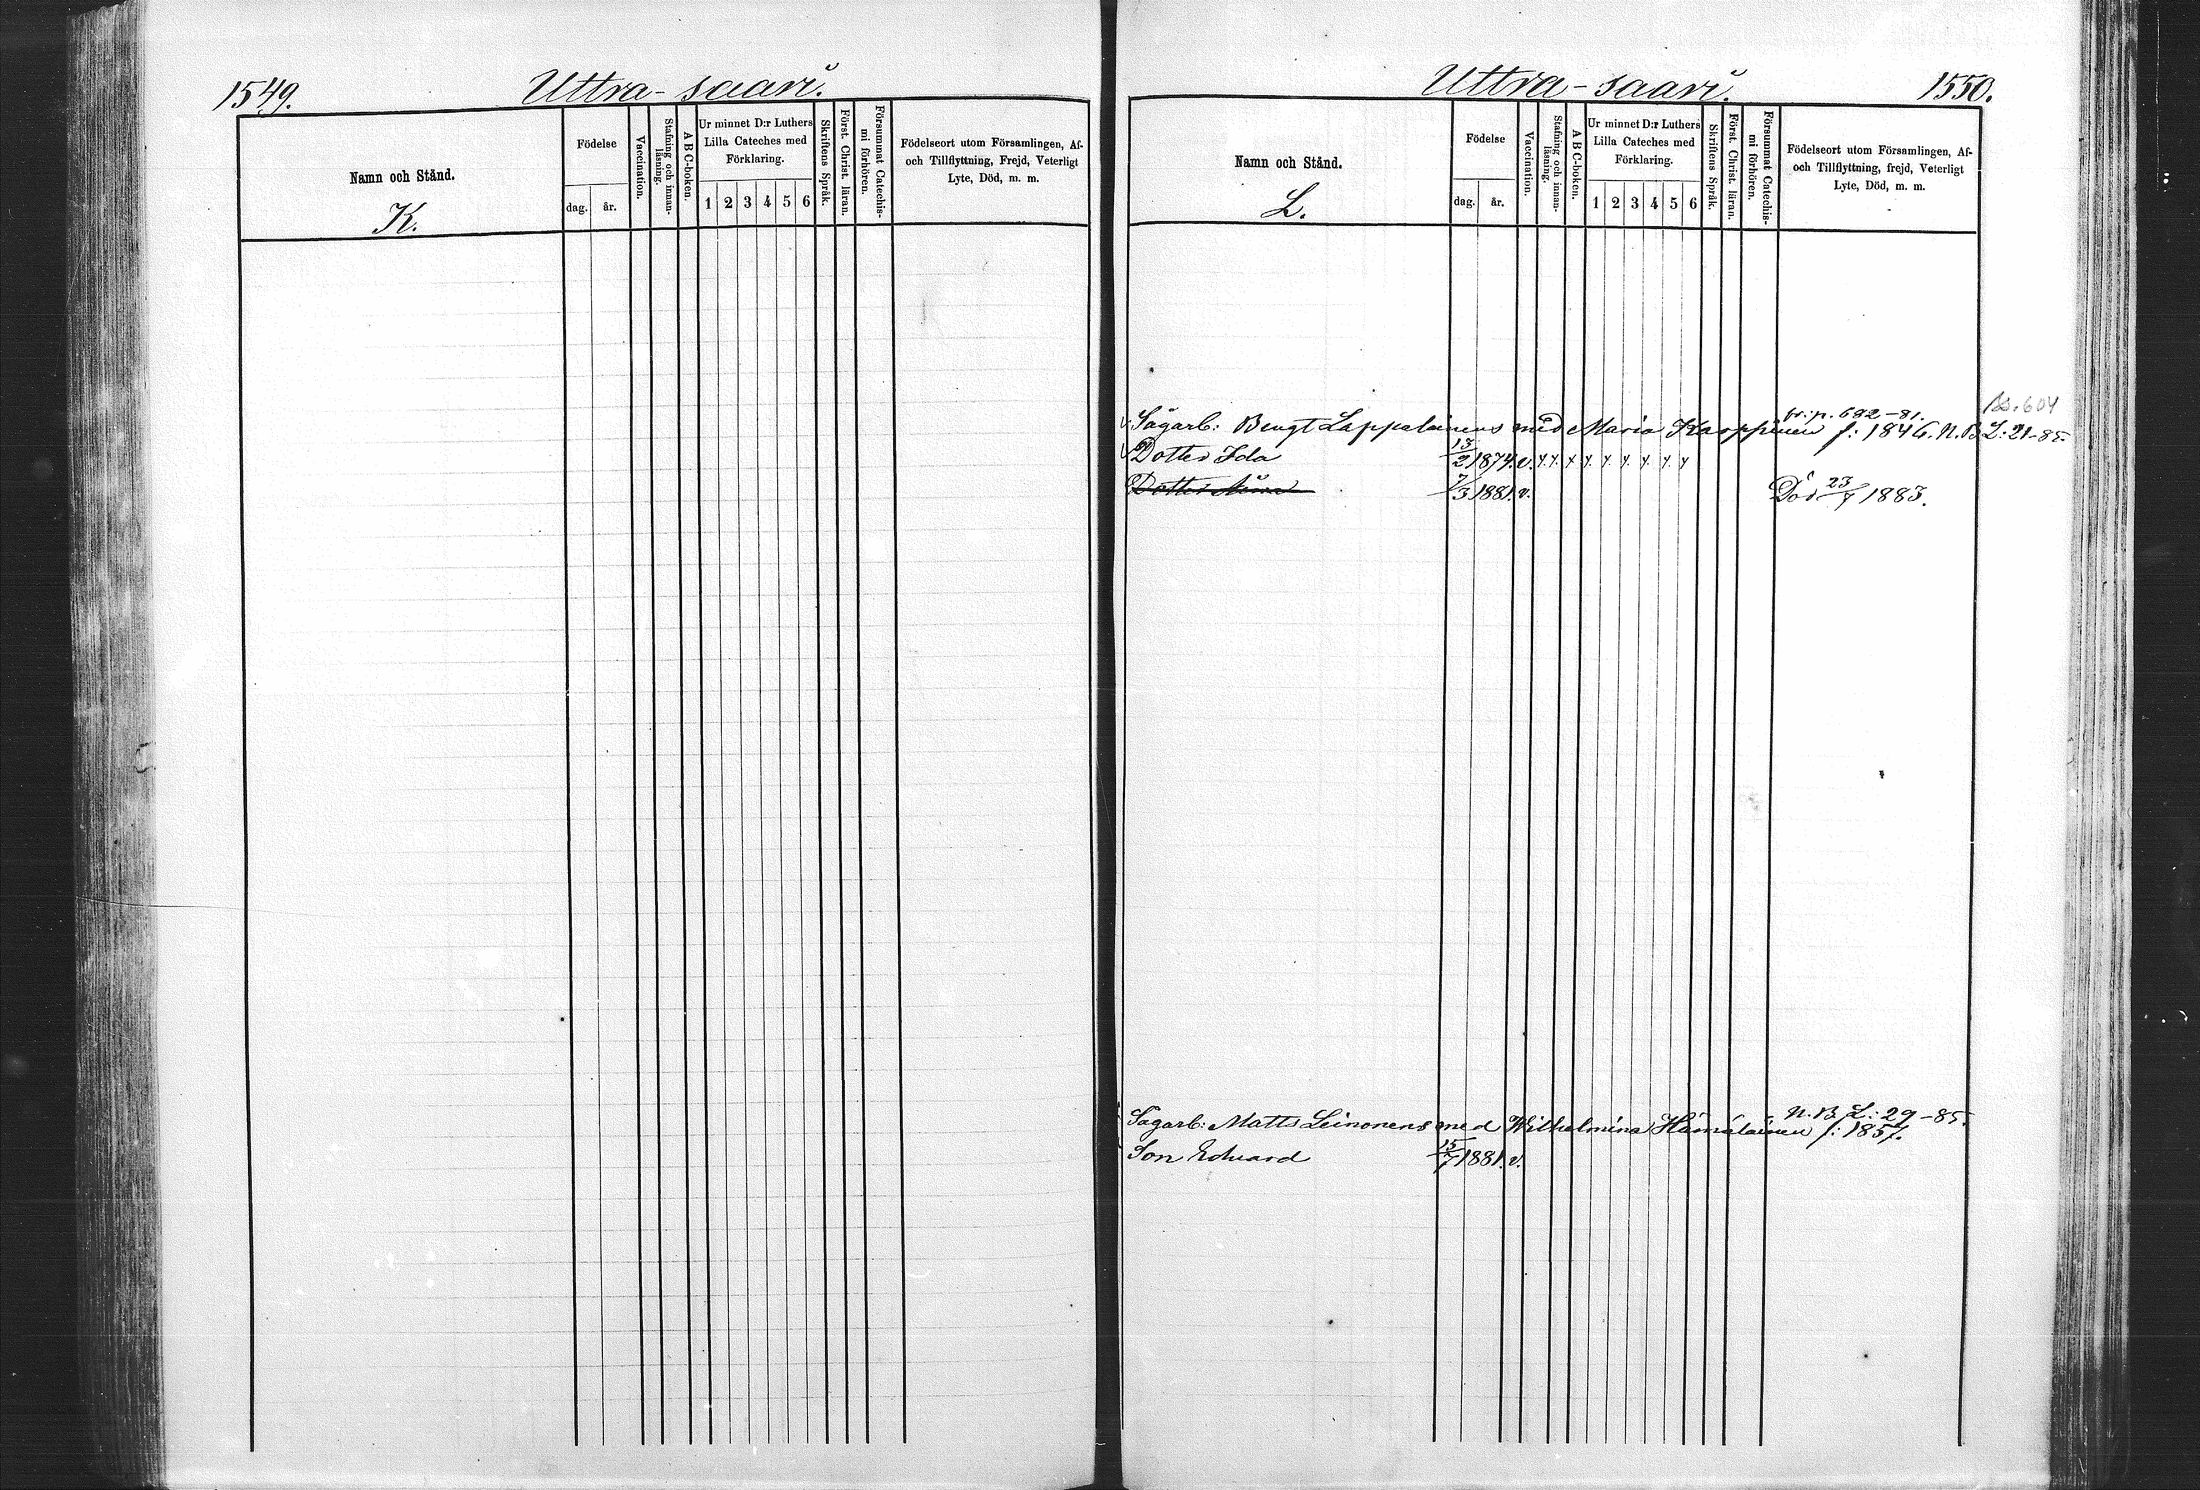 1549.
Uttra-saari.
Namn och Stånd.
K.
Födelse
dag.
år.
Vaccination.
Stafning och innan-
läsning.
A B C-boken.
Ur minnet D:r Luthers
Lilla Cateches med
Förklaring.
1 2 3 4 5 6
Skriftens Språk.
Först. Christ. läran.
Försummat Catechis-
mi förhören.
Födelseort utom Församlingen, Af-
och Tillflyttning, Frejd, Veterligt
Lyte, Död, m. m.
Uttra-saari.
1550.
Namn och Stånd.
L.
Födelse
dag.
år.
Vaccination.
Stafning och innan-
läsning.
A B C-boken.
Ur minnet D:r Luthers
Lilla Cateches med
Förklaring.
1 2 3 4 5 6
Skriftens Språk.
Först. Christ. läran.
Försummat Catechis-
mi förhören.
Födelseort utom Församlingen, Af-
och Tillflyttning, frejd, Veterligt
Lyte, Död, m. m.
p. 692-81. 604
Sågarb: Bengt Lappalainens med Maria Karppinen f: 1846. N.B. L: 21-85.
Dotter Ida 13/2 1874. v. y. y. y y. y. y. y. y. y
Dotter 7/3 1881. v. Död 23/7 1883.
N.B. L: 29-85.
Sågarb: Matts Leinonens med Wilhelmina Hämäläinen f: 1857.
Son Eduard 15/7 1881. v.